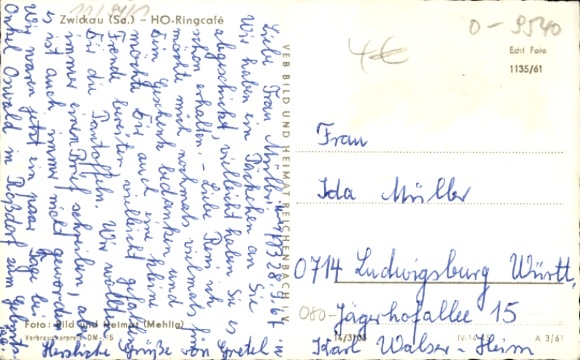 Zwickau (Sa.) – HO-Ringcafé
Liebe Frau Müller!
28.9.67
Wir haben ein Päckchen an Sie
abgeschickt, vielleicht haben Sie es
schon erhalten. – Liebe
möchte mich nochmals vielmals für
Dein Geschenk bedanken und
möchte Dir auch eine kleine
Freude bereiten, vielleicht gefallen
Dir die Pantoffeln. Wir wollten
immer einen Brief schreiben, aber
es ist auch immer nicht geworden.
Wir waren jetzt ein paar Tage bei
Onkel Oswald in Roßdorf zum
Herzliche Grüße von Gretel
Foto: Bild und Heimat (Mehlig)
VEB BILD UND HEIMAT REICHENBACH I. V.
4€
0-9540
Echt Foto
1135/61
Frau
Ida Müller
0714 Ludwigsburg Württ.
080- Jägerhofallee 15
Karl Walser Heim
A 3/61